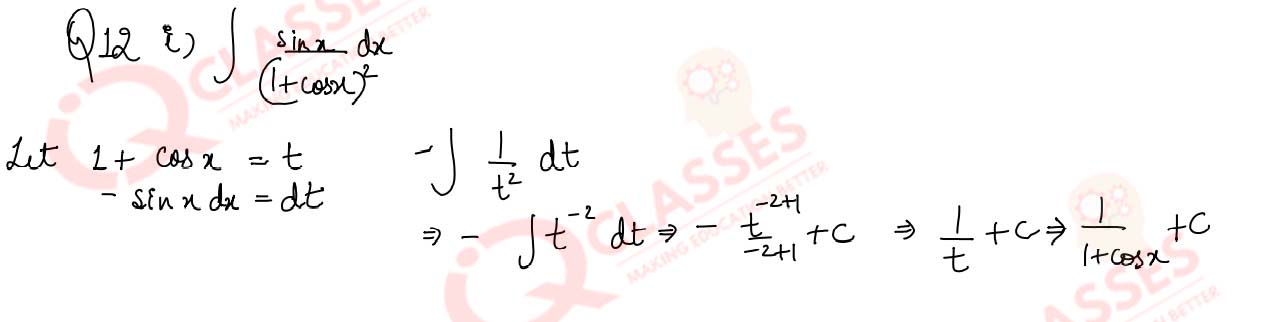 Q12 i) ∫ sinx/(1+cosx)² dx
Let 1 + cos x = t
- sin x dx = dt
-∫ 1/t² dt
⇒ - ∫ t⁻² dt ⇒ - t⁻²⁺¹/-2+1 + c ⇒ 1/t + c ⇒ 1/1+cosx + c
IQ CLASSES
MAKING EDUCATION BETTER
CLASSES
MAKING EDUCATION BETTER
ASSES
ASSES
N BETTER